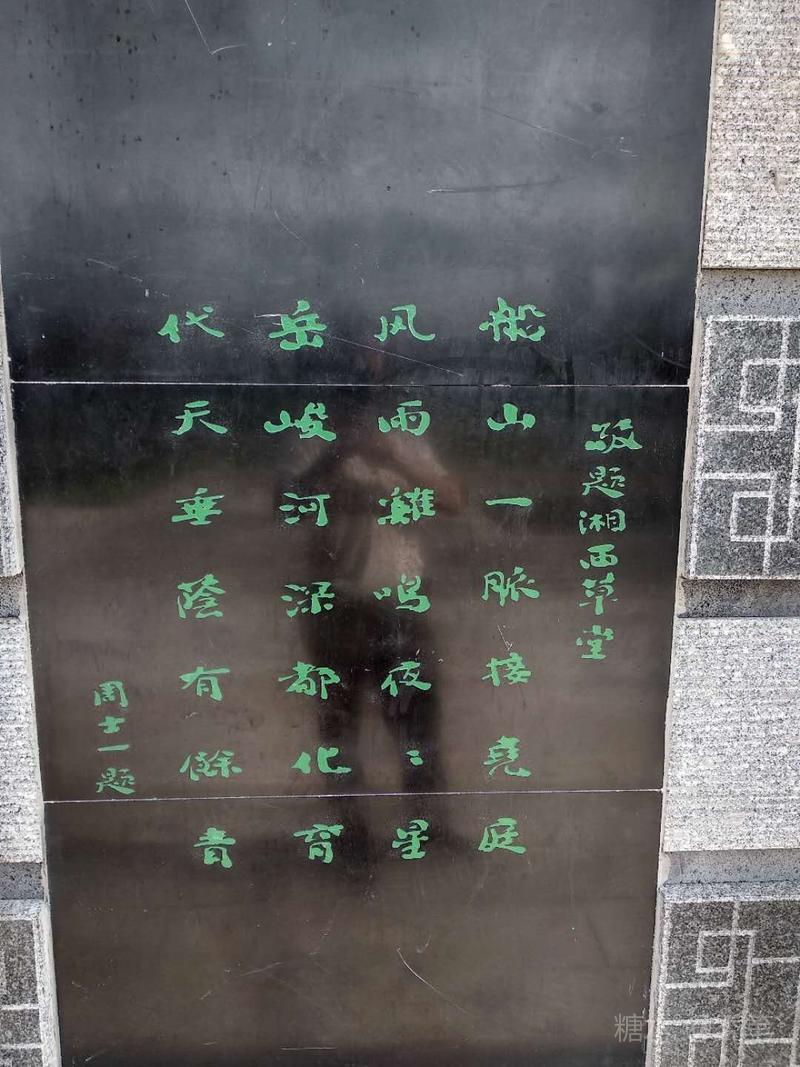 敬题湘西草堂
船山一脈接堯庭
风雨雞鸣夜：星
岳峻河深都化育
代天垂蔭有餘青
周士一题